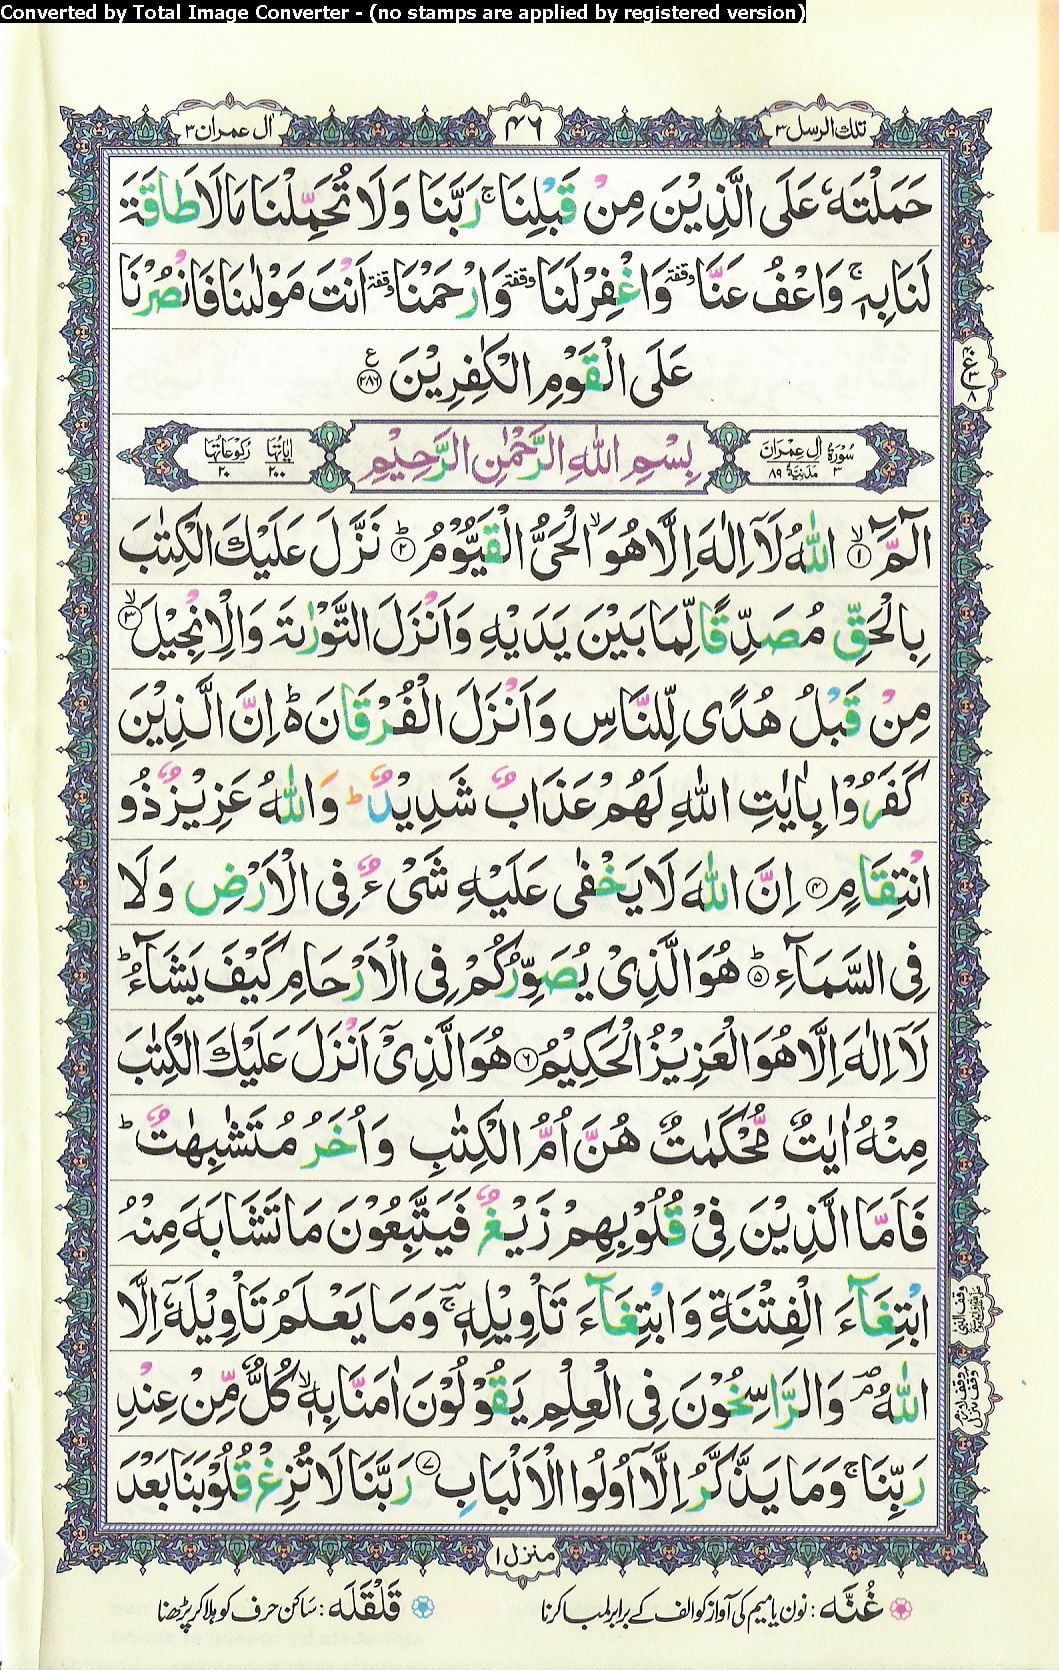 Converted by Total Image Converter - (no stamps are applied by registered version)
تلك الرسل ٣
٤٦
اٰل عمران ٣
حَمَلْتَهٗ عَلَى الَّذِيْنَ مِنْ قَبْلِنَا ۚ رَبَّنَا وَلَا تُحَمِّلْنَا مَا لَا طَاقَةَ
لَنَا بِهٖ ۚ وَاعْفُ عَنَّا وقفة وَاغْفِرْ لَنَا وقفة وَارْحَمْنَا وقفة اَنْتَ مَوْلٰىنَا فَانْصُرْنَا
عَلَى الْقَوْمِ الْكٰفِرِيْنَ ﴿٢٨٦﴾ ع
سُوْرَةُ اٰلِ عِمْرَانَ ٣ مَدَنِيَّةٌ ٨٩
بِسْمِ اللّٰهِ الرَّحْمٰنِ الرَّحِيْمِ
اٰيَاتُهَا ٢٠٠ رُكُوْعَاتُهَا ٢٠
الٓمّٓ ﴿١﴾ۙ اللّٰهُ لَاۤ اِلٰهَ اِلَّا هُوَ ۙ الْحَيُّ الْقَيُّوْمُ ﴿٢﴾ؕ نَزَّلَ عَلَيْكَ الْكِتٰبَ
بِالْحَقِّ مُصَدِّقًا لِّمَا بَيْنَ يَدَيْهِ وَاَنْزَلَ التَّوْرٰىةَ وَالْاِنْجِيْلَ ﴿٣﴾ۙ
مِنْ قَبْلُ هُدًى لِّلنَّاسِ وَاَنْزَلَ الْفُرْقَانَ ۬ؕ اِنَّ الَّذِيْنَ
كَفَرُوْا بِاٰيٰتِ اللّٰهِ لَهُمْ عَذَابٌ شَدِيْدٌ ؕ وَاللّٰهُ عَزِيْزٌ ذُو
انْتِقَامٍ ﴿٤﴾ اِنَّ اللّٰهَ لَا يَخْفٰى عَلَيْهِ شَيْءٌ فِى الْاَرْضِ وَلَا
فِى السَّمَآءِ ﴿٥﴾ؕ هُوَ الَّذِيْ يُصَوِّرُكُمْ فِى الْاَرْحَامِ كَيْفَ يَشَآءُ ؕ
لَاۤ اِلٰهَ اِلَّا هُوَ الْعَزِيْزُ الْحَكِيْمُ ﴿٦﴾ هُوَ الَّذِيْۤ اَنْزَلَ عَلَيْكَ الْكِتٰبَ
مِنْهُ اٰيٰتٌ مُّحْكَمٰتٌ هُنَّ اُمُّ الْكِتٰبِ وَاُخَرُ مُتَشٰبِهٰتٌ ؕ
فَاَمَّا الَّذِيْنَ فِيْ قُلُوْبِهِمْ زَيْغٌ فَيَتَّبِعُوْنَ مَا تَشَابَهَ مِنْهُ
ابْتِغَآءَ الْفِتْنَةِ وَابْتِغَآءَ تَاْوِيْلِهٖ ۚ وَمَا يَعْلَمُ تَاْوِيْلَهٗۤ اِلَّا
اللّٰهُ ۘ وَالرَّاسِخُوْنَ فِى الْعِلْمِ يَقُوْلُوْنَ اٰمَنَّا بِهٖ ۙ كُلٌّ مِّنْ عِنْدِ
رَبِّنَا ۚ وَمَا يَذَّكَّرُ اِلَّاۤ اُولُوا الْاَلْبَابِ ﴿٧﴾ رَبَّنَا لَا تُزِغْ قُلُوْبَنَا بَعْدَ
منزل ١
غُنَّه : نون یا میم کی آواز کو الف کے برابر لمبا کرنا
قَلْقَلَه : ساکن حرف کو ہلا کر پڑھنا